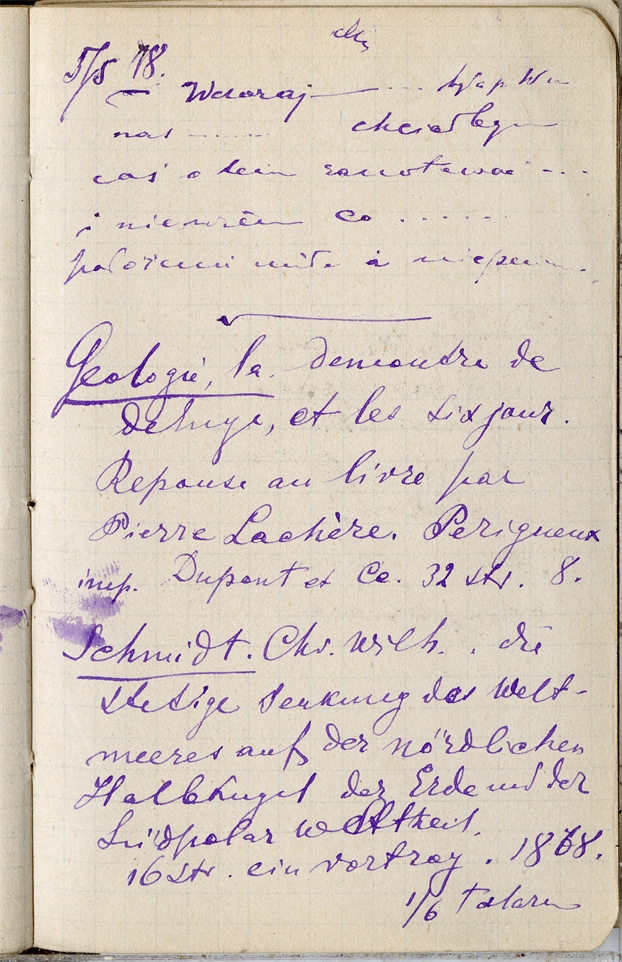 5/5 18.
Wczoraj
nas ...... chciałbym
coś o tem zanotować ...
i nie wiem co ......
Geologie, la. Demontre de
deluge, et les six jour.
Reponse au livre par
Pierre Lachère. Perigueux
imp. Dupont et Co. 32 str. 8.
Schmidt. Chr. Wilh. . die
stetige Senkung des Welt-
meeres auf der nördlichen
Halbkugel der Erde und der
Südpolar weltteil.
16 str. ein vortrag. 1868.
1/6 Talara